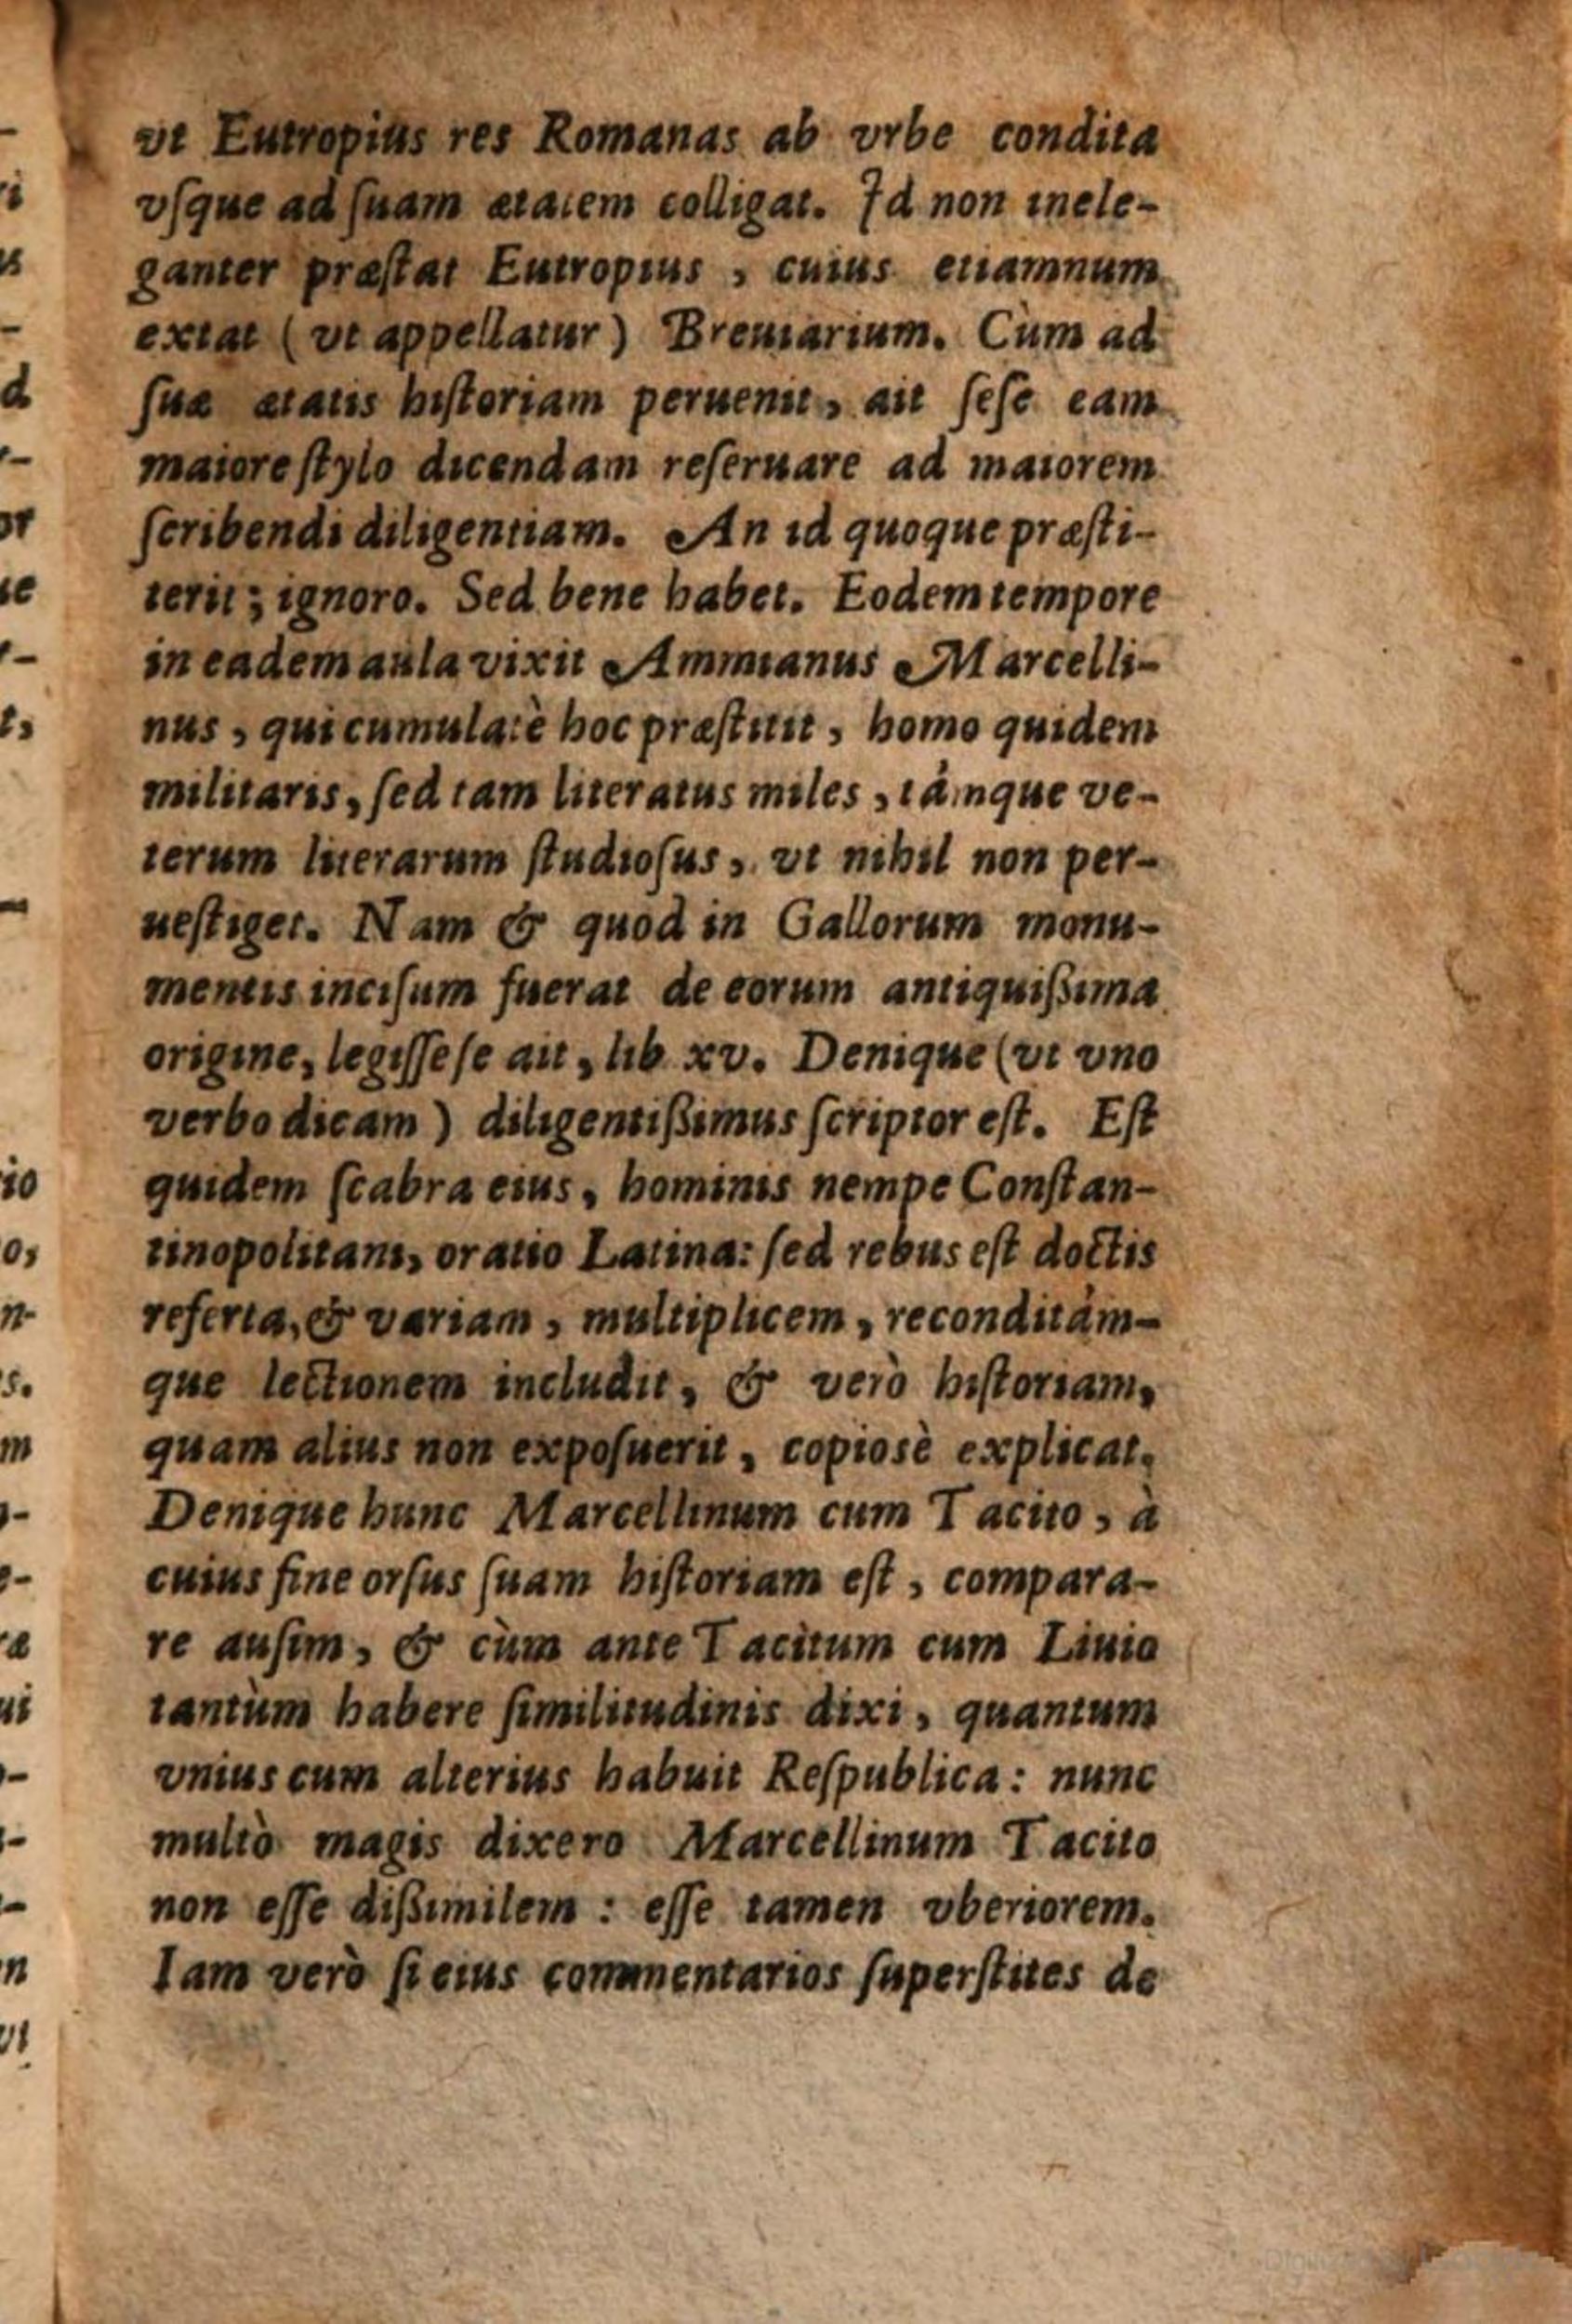 vt Eutropius res Romanas ab vrbe condita
vſque ad ſuam ætatem colligat. Id non inele-
ganter præſtat Eutropius , cuius etiamnum
extat ( vt appellatur ) Breuiarium. Cùm ad
ſuæ ætatis hiſtoriam peruenit , ait ſeſe eam
maiore ſtylo dicendam reſeruare ad maiorem
ſcribendi diligentiam. An id quoque præſti-
terit ; ignoro. Sed bene habet. Eodem tempore
in eadem aula vixit Ammianus Marcelli-
nus , qui cumulatè hoc præſtitit , homo quidem
militaris, ſed tam literatus miles , támque ve-
terum literarum ſtudioſus , vt nihil non per-
ueſtiget. Nam & quod in Gallorum monu-
mentis inciſum fuerat de eorum antiquißima
origine, legiſſe ſe ait , lib xv. Denique (vt vno
verbo dicam ) diligentißimus ſcriptor eſt. Eſt
quidem ſcabra eius , hominis nempe Conſtan-
tinopolitani, oratio Latina: ſed rebus eſt doctis
referta, & variam , multiplicem , reconditám-
que lectionem includit , & verò hiſtoriam,
quam alius non expoſuerit , copiosè explicat.
Denique hunc Marcellinum cum Tacito , à
cuius fine orſus ſuam hiſtoriam eſt , compara-
re auſim , & cùm ante Tacitum cum Liuio
tantùm habere ſimilitudinis dixi , quantum
vnius cum alterius habuit Reſpublica : nunc
multò magis dixero Marcellinum Tacito
non eſſe dißimilem : eſſe tamen vberiorem.
Iam verò ſi eius commentarios ſuperſtites de